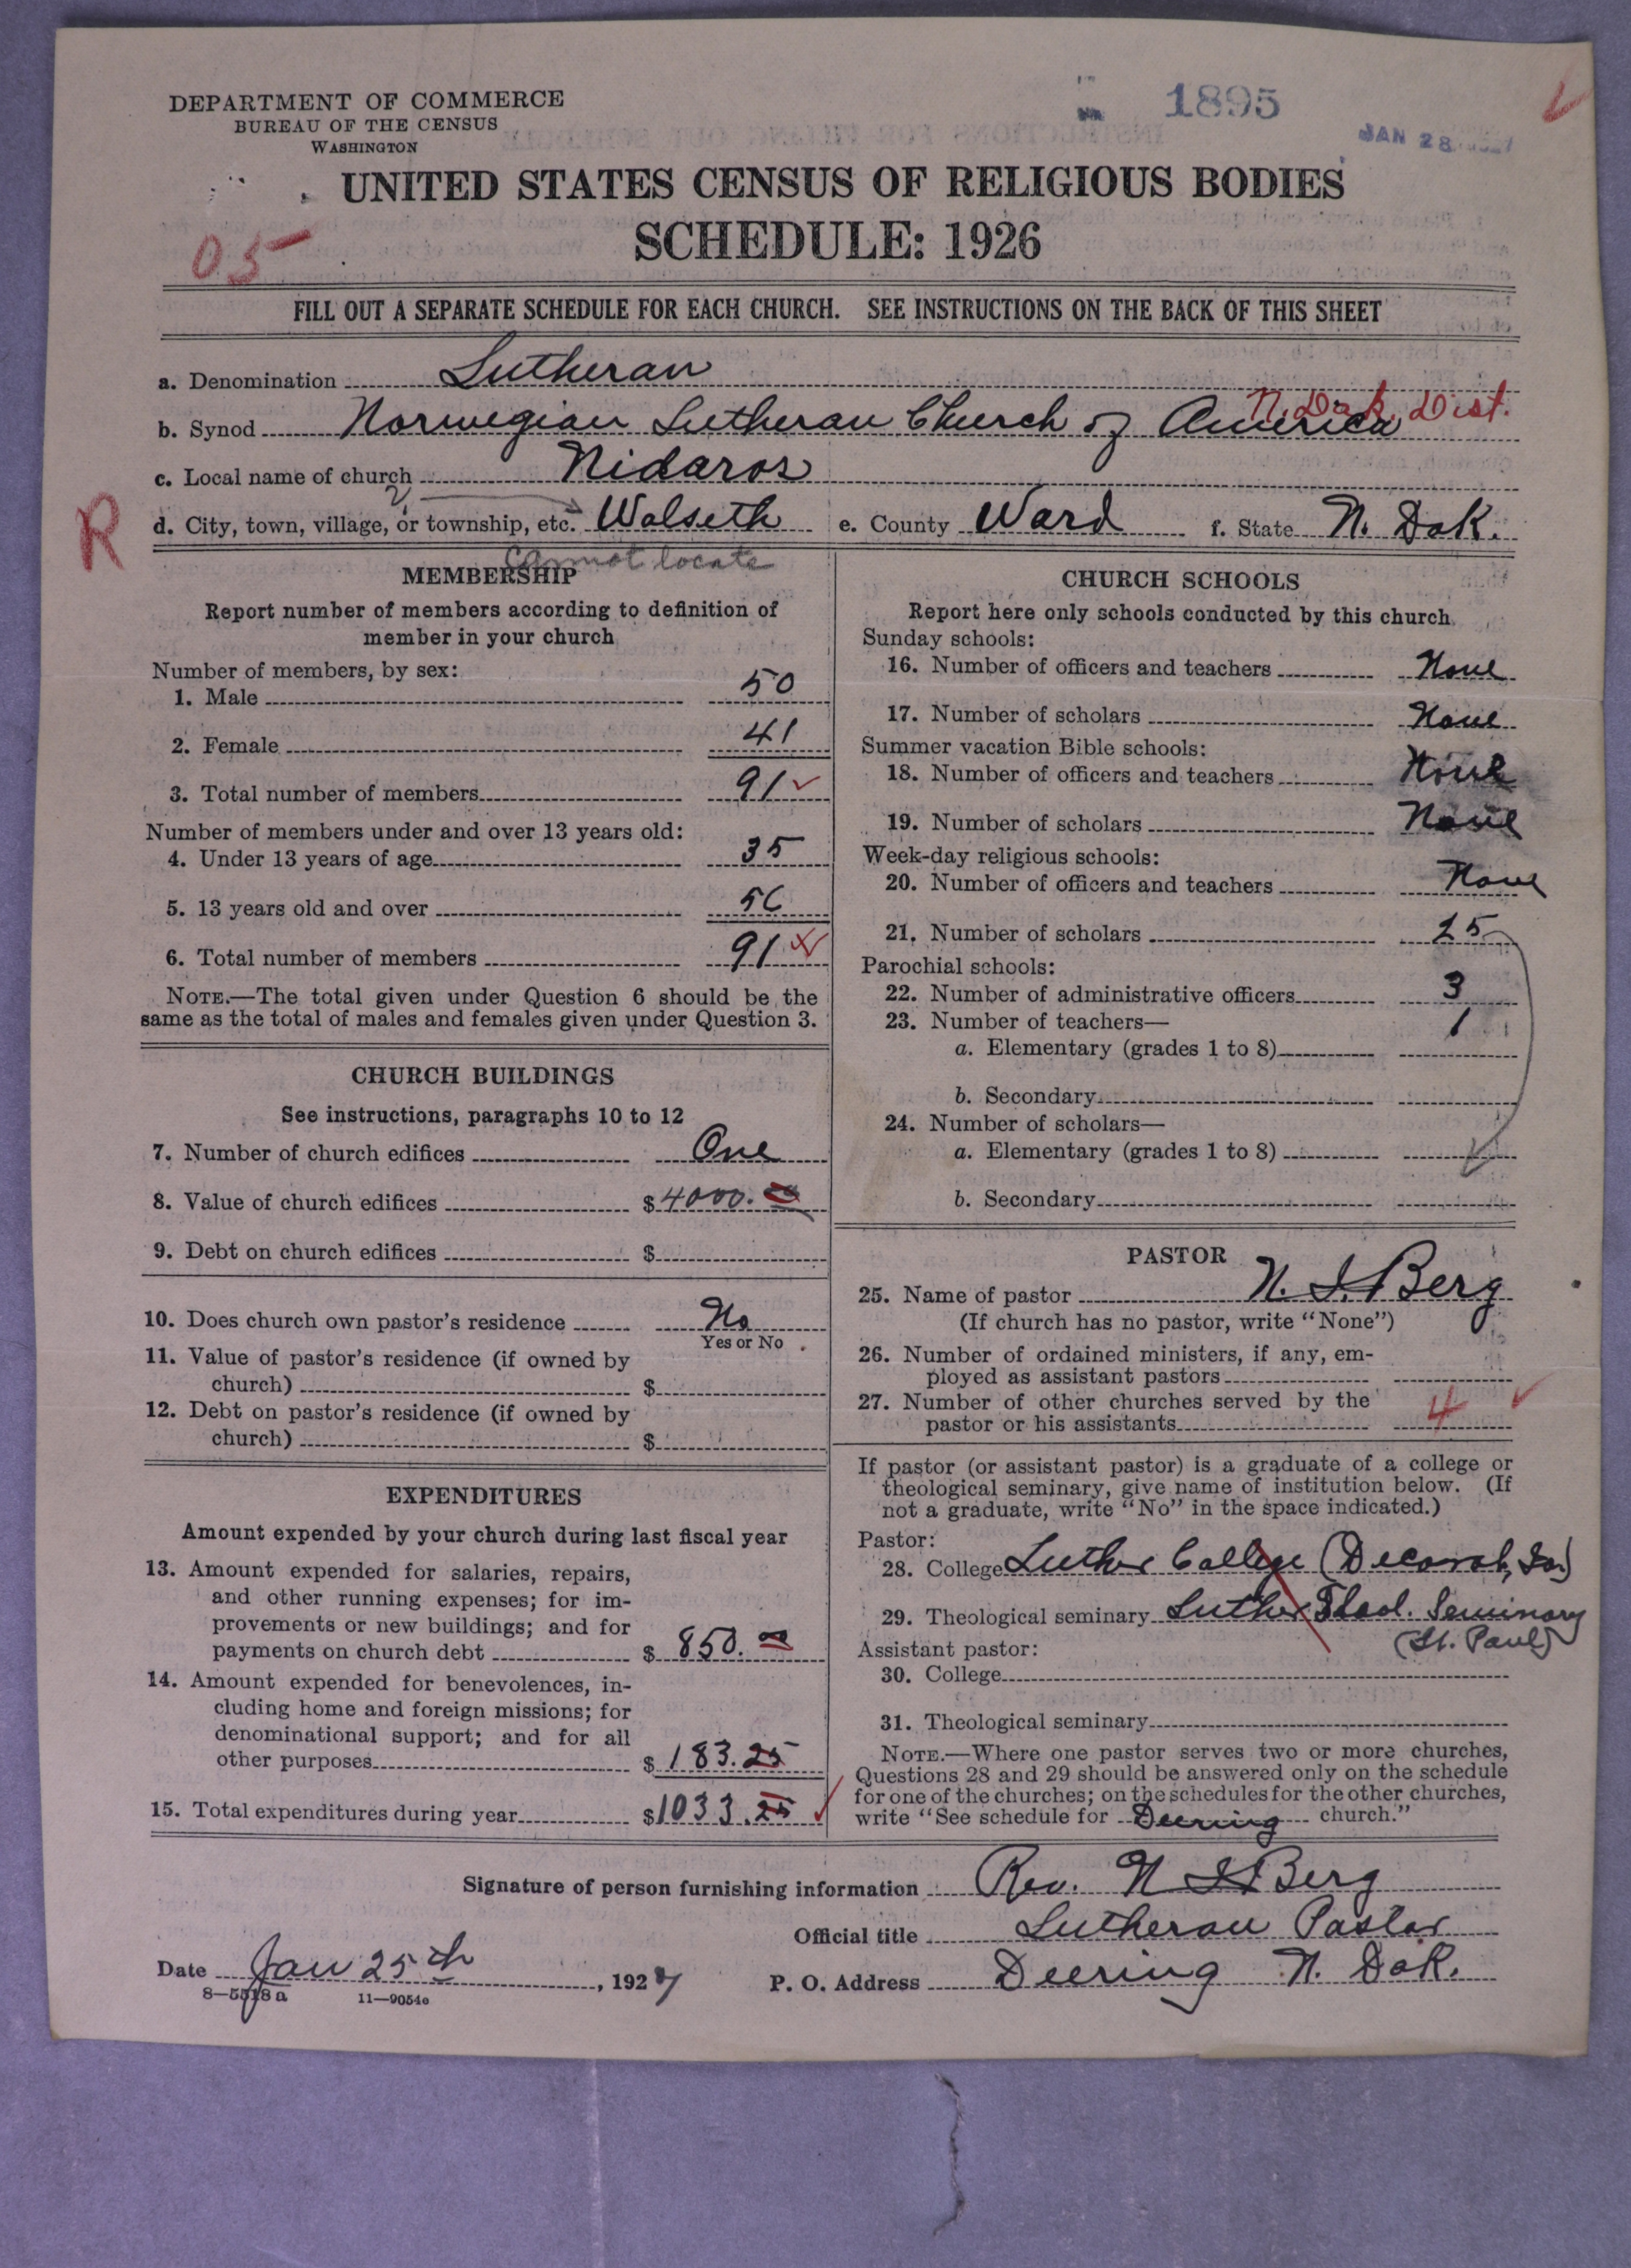 DEPARTMENT OF COMMERCE
BUREAU OF THE CENSUS
WASHINGTON
1895
JAN 28
UNITED STATES CENSUS OF RELIGIOUS BODIES
SCHEDULE: 1926
05
FILL OUT A SEPARATE SCHEDULE FOR EACH CHURCH. SEE INSTRUCTIONS ON THE BACK OF THIS SHEET
a. Denomination Lutheran
N. Dak. Dist.
b. Synod Norwegian Lutheran Church of America
c. Local name of church Nidaros
R
d. City, town, village, or township, etc. Wolseth e. County Ward f. State N. Dak.
cannot locate
MEMBERSHIP
Report number of members according to definition of
member in your church
Number of members, by sex:
1. Male 50
2. Female 41
3. Total number of members 91
Number of members under and over 13 years old:
4. Under 13 years of age 35
5. 13 years old and over 56
6. Total number of members 91
NOTE.—The total given under Question 6 should be the
same as the total of males and females given under Question 3.
CHURCH BUILDINGS
See instructions, paragraphs 10 to 12
7. Number of church edifices One
8. Value of church edifices $4000.00
9. Debt on church edifices $
10. Does church own pastor's residence No
Yes or No
11. Value of pastor's residence (if owned by
church) $
12. Debt on pastor's residence (if owned by
church) $
EXPENDITURES
Amount expended by your church during last fiscal year
13. Amount expended for salaries, repairs,
and other running expenses; for im-
provements or new buildings; and for
payments on church debt $ 850.00
14. Amount expended for benevolences, in-
cluding home and foreign missions; for
denominational support; and for all
other purposes $ 183.25
15. Total expenditures during year $1033.25
CHURCH SCHOOLS
Report here only schools conducted by this church
Sunday schools:
16. Number of officers and teachers None
17. Number of scholars None
Summer vacation Bible schools:
18. Number of officers and teachers None
19. Number of scholars None
Week-day religious schools:
20. Number of officers and teachers None
21. Number of scholars 25
Parochial schools:
22. Number of administrative officers 3
23. Number of teachers— 1
a. Elementary (grades 1 to 8)
b. Secondary
24. Number of scholars—
a. Elementary (grades 1 to 8)
b. Secondary
PASTOR
25. Name of pastor N. I. Berg
(If church has no pastor, write "None")
26. Number of ordained ministers, if any, em-
ployed as assistant pastors
27. Number of other churches served by the
pastor or his assistants 4
If pastor (or assistant pastor) is a graduate of a college or
theological seminary, give name of institution below. (If
not a graduate, write "No" in the space indicated.)
Pastor:
28. College Luther College (Decorah, Ia.)
29. Theological seminary Luther Theol. Seminary
(St. Paul)
Assistant pastor:
30. College
31. Theological seminary
NOTE.—Where one pastor serves two or more churches,
Questions 28 and 29 should be answered only on the schedule
for one of the churches; on the schedules for the other churches,
write "See schedule for Deering church."
Signature of person furnishing information Rev. N I Berg
Official title Lutheran Pastor
Date Jan 25th, 1927 P. O. Address Deering N. Dak.
8—5518a 11—9054e